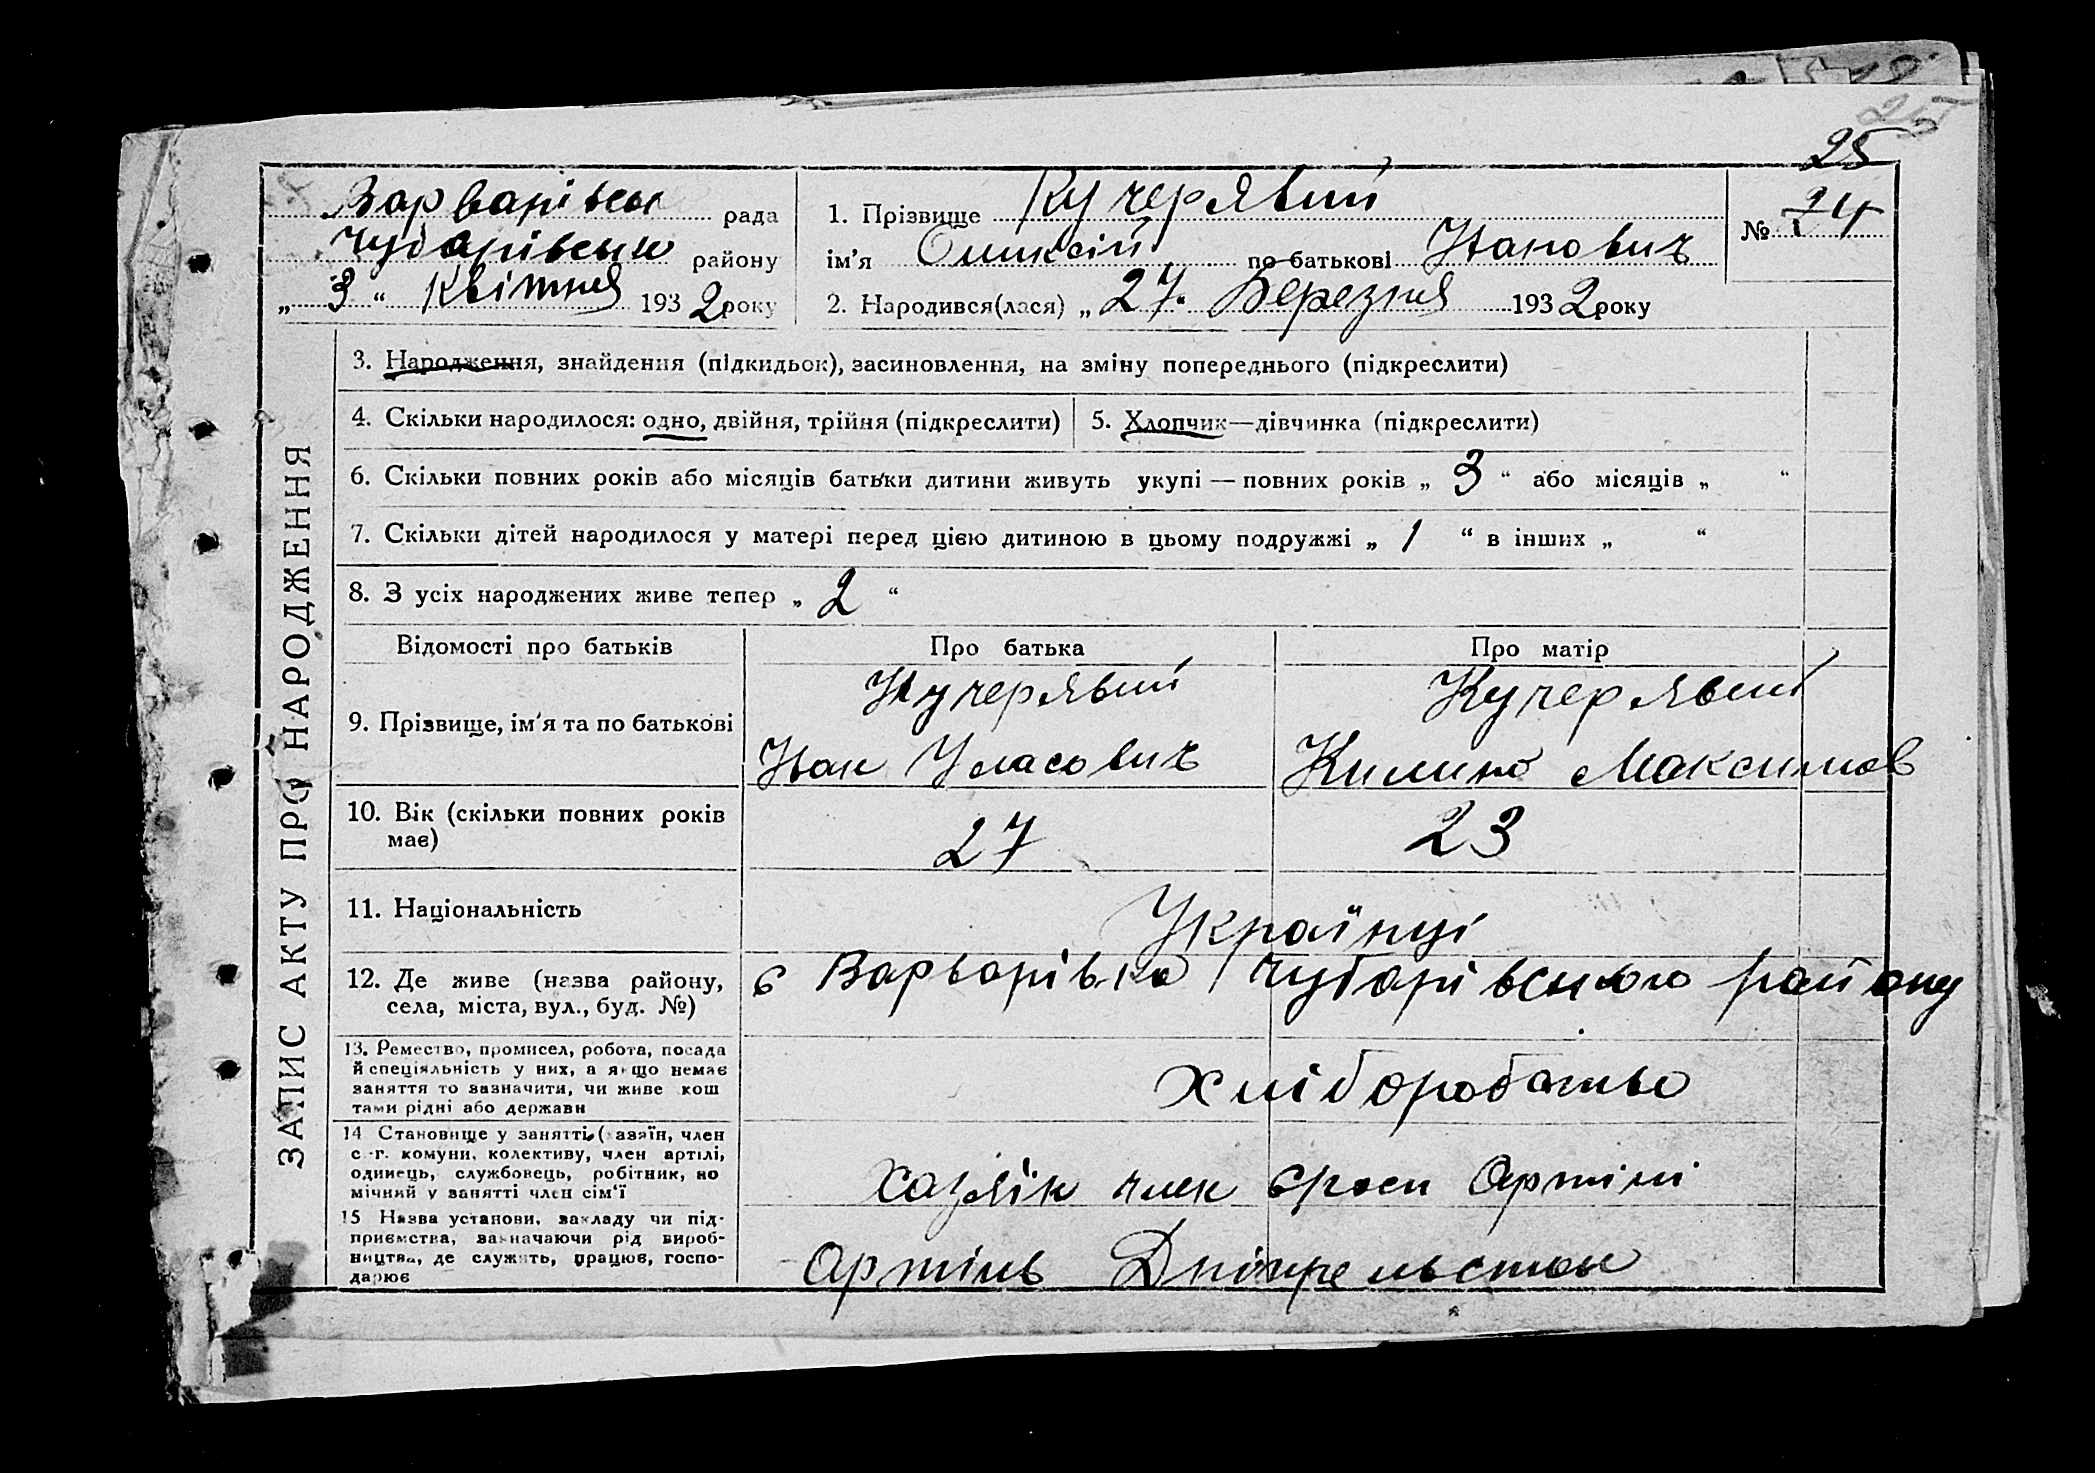 25
25
Варварівсь рада
Чубарівськ району
„ 3 “ Квітня 1932 року
1. Прізвище Кучерявий
ім’я Оликсій по батькові Іванович
2. Народився(лася) „ 27 “ Березня 1932 року
№ 24
ЗАПИС АКТУ ПРО НАРОДЖЕННЯ
3. Народження, знайдення (підкидьок), засиновлення, на зміну попереднього (підкреслити)
4. Скільки народилося: одно, двійня, трійня (підкреслити)
5. Хлопчик—дівчинка (підкреслити)
6. Скільки повних років або місяців батьки дитини живуть укупі — повних років „ 3 “ або місяців „ “
7. Скільки дітей народилося у матері перед цією дитиною в цьому подружжі „ 1 “ в інших „ “
8. З усіх народжених живе тепер „ 2 “
Відомості про батьків
Про батька
Про матір
9. Прізвище, ім’я та по батькові
Кучерявий
Іван Уласович
Кучерявий
Килина Максимов
10. Вік (скільки повних років
має)
27
23
11. Національність
Українці
12. Де живе (назва району,
села, міста, вул., буд. №)
с Варварівка Чубарівського району
13. Ремество, промисел, робота, посада
й спеціяльність у них, а якщо немає
заняття то зазначити, чи живе кош
тами рідні або держави
Хліборобство
14 Становище у занятті (хазяїн, член
с.-г. комуни, колективу, член артілі,
одинець, службовець, робітник, по
мічний у занятті член сім’ї
Хазяїн член Артілі
15 Назва установи, закладу чи під-
приємства, зазначаючи рід вироб-
ництва, де служить, працює, госпо-
дарює
Артіль Дніпрельстан